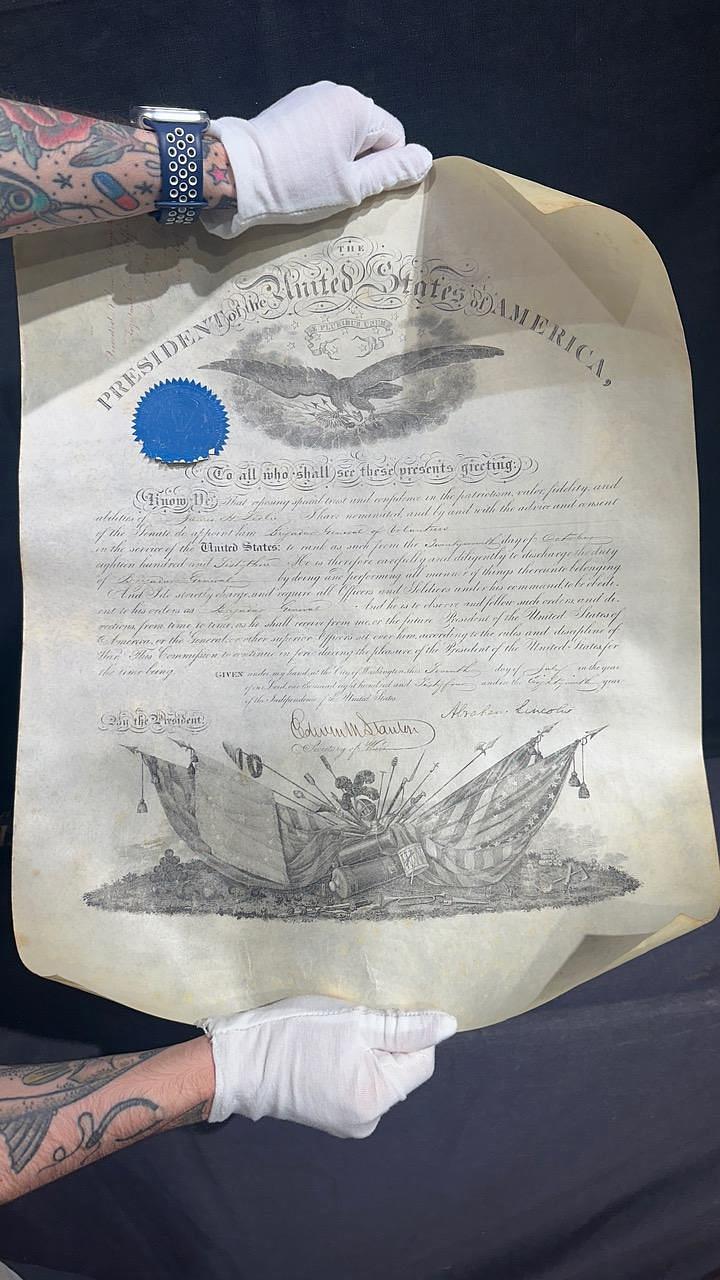 THE
PRESIDENT of the United States of AMERICA,
E PLURIBUS UNUM
To all who shall see these presents greeting:
Know Ye, That reposing special trust and confidence in the patriotism, valor, fidelity, and
abilities of James H. I have nominated, and by and with the advice and consent
of the Senate do appoint him Brigadier General of Volunteers
in the service of the United States: to rank as such from the day of October
eighteen hundred and Sixty three. He is therefore carefully and diligently to discharge the duty
of Brigadier General by doing and performing all manner of things thereunto belonging.
And I do strictly charge, and require all Officers and Soldiers under his command to be obedi-
ent to his orders as Brigadier General. And he is to observe and follow such orders, and di-
rections, from time to time, as he shall receive from me, or the future President of the United States of
America, or the General, or other superior Officers set over him, according to the rules and discipline of
War. This Commission to continue in force during the pleasure of the President of the United States, for
the time being.
GIVEN under my hand, at the City of Washington, this Seventh day of July in the year
of our Lord, one thousand eight hundred and Sixty four and in the Eighty eighth year
of the Independence of the United States.
Abraham Lincoln
By the President:
Edwin M Stanton
Secretary of War